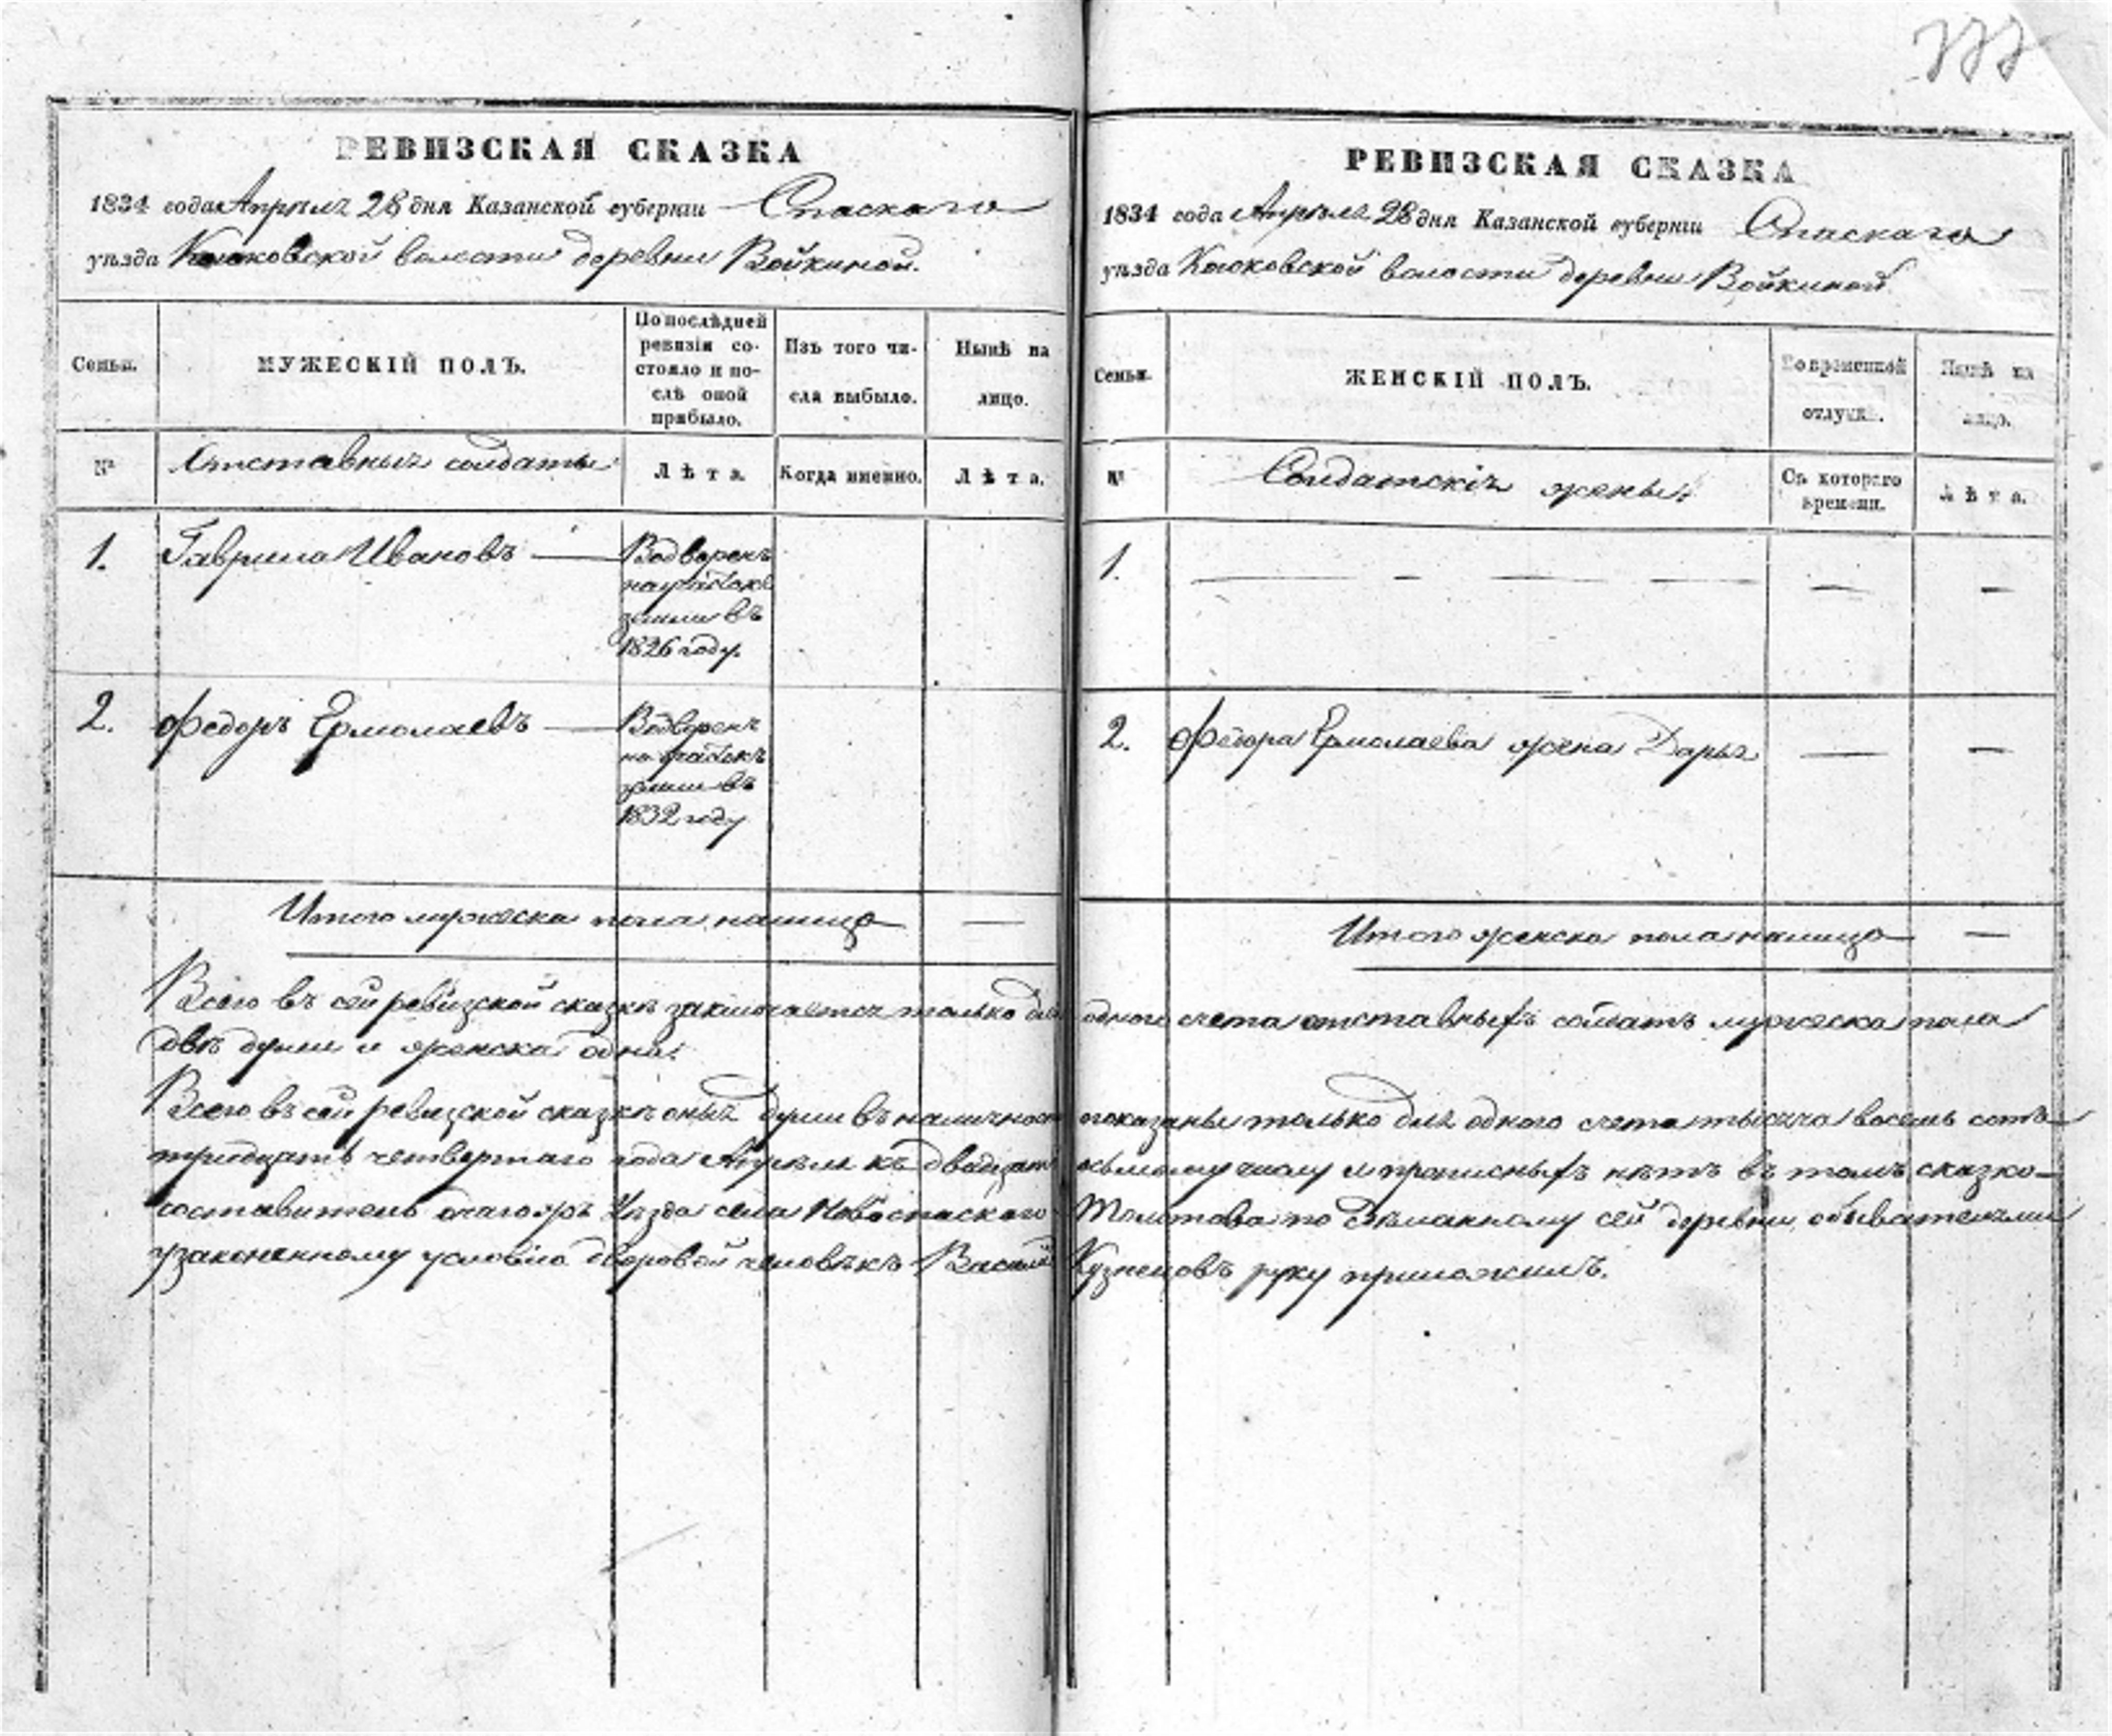 777
РЕВИЗСКАЯ СКАЗКА
1834 года Апрѣля 28 дня Казанской губерніи Спаскаго
уѣзда Кюковской волости деревни Войкиной.
Семьи.
МУЖЕСКІЙ ПОЛЪ.
По послѣдней
ревизіи со-
стояло и по-
слѣ оной
прибыло.
Изъ того чи-
сла выбыло.
Нынѣ на
лицо.
№
Отставныя солдаты
Лѣта.
Когда именно.
Лѣта.
1.
Гаврила Ивановъ
Водворенъ
на участокѣ
земли въ
1826 году.
2.
Федоръ Ермолаевъ
Водворенъ
на
земли въ
1832 году
Итого мужеска пола налицо
РЕВИЗСКАЯ СКАЗКА
1834 года Апрѣля 28 дня Казанской губерніи Спаскаго
уѣзда Кюковской волости деревни Войкиной
Семьи.
ЖЕНСКІЙ ПОЛЪ.
Во временной
отлучкѣ.
Нынѣ на
лицо.
№
Солдатскія жены.
Съ котораго
времени.
Лѣта.
1.
2.
Федора Ермолаева жена Дарья
Итого женска пола налицо
Всего въ сей ревизской сказкѣ заключается только для одного счета отставныхъ солдатъ мужеска пола
двѣ души и женска одна.
Всего въ сей ревизской сказкѣ оныя души въ наличности показаны только для одного счета тысяча восемь сотъ
тридцать четвертаго года Апрѣля къ двадцать осьмому числу и прописныхъ нѣтъ въ томъ сказко-
составитель уѣзда села Новоспаскаго Толстова по сей деревни обывателями
узаконенному условію дворовой человѣкъ Василій Кузнецовъ руку приложилъ.